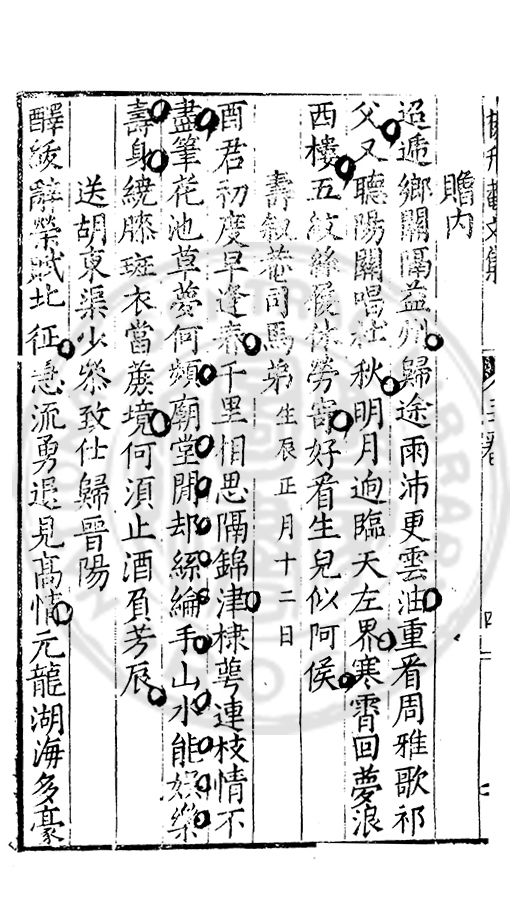 贈内
迢遞鄉關隔益州歸途雨沛更雲油重看周雅歌祁
父又聽陽關唱杜秋明月逈臨天左界寒霄回夢浪
西樓五紋絲 休勞寄好看生兒似阿侯
壽叙菴司馬弟生辰正月十二日
酉君初度早逢春千里相思隔錦津棣萼連枝情不
盡筆花池草夢何頻廟堂閒却絲綸手山水能娛樂
壽身繞膝斑衣當蔗境何須止酒負芳辰
送胡東渠少參致仕歸晉陽
醳紱辭榮賦北征急流勇退見高情元龍湖海多豪